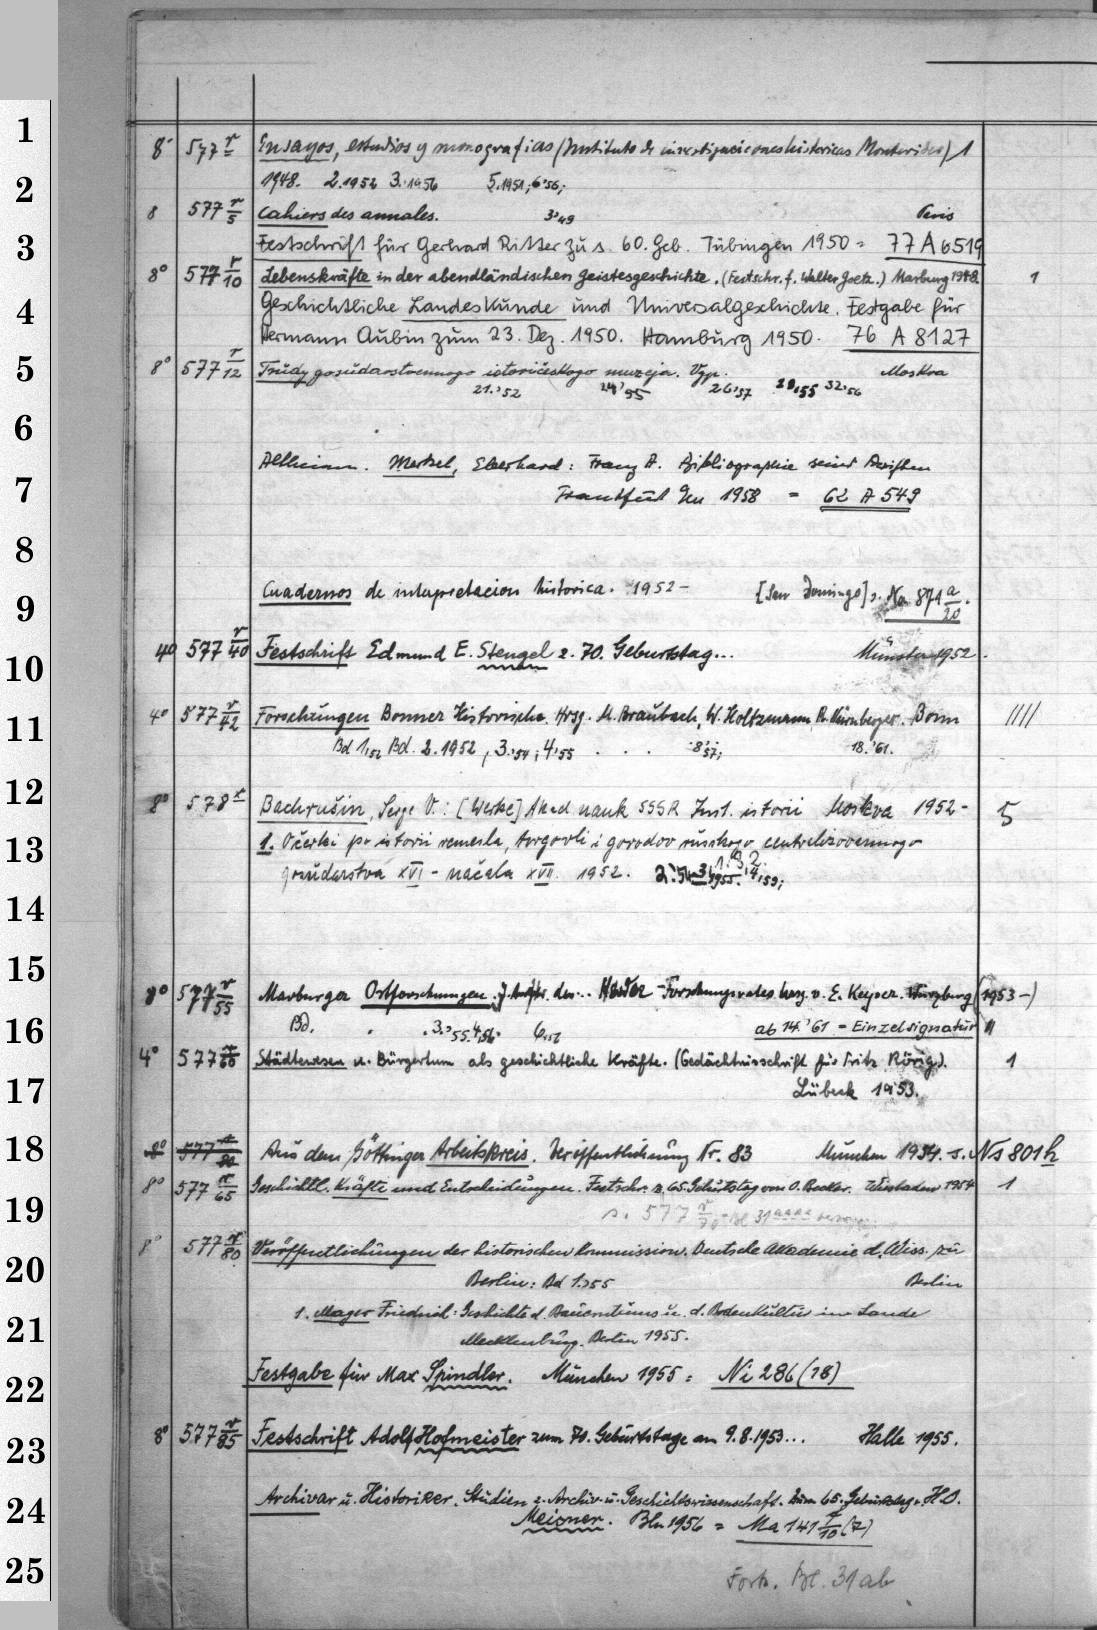 1
8° 577 r Ensayos, estudios y monografias (Instituto de investigaciones historicas Montevideo) 1
2
1948. 2.1952 3.1956 5.1951; 6'56;
8 577 r/5 Cahiers des annales. 3'49 Paris
3
Festschrift für Gerhard Ritter zu s. 60. Geb. Tübingen 1950 = 77 A 6519
8° 577 r/10 Lebenskräfte in der abendländischen Geistesgeschichte. (Festschr. f. Walter Goetz.) Marburg 1948. 1
4
Geschichtliche Landeskunde und Universalgeschichte. Festgabe für
Hermann Aubin zum 23. Dez. 1950. Hamburg 1950. 76 A 8127
5
8° 577 r/12 Trudy gosudarstvennogo istoričeskogo muzeja. Vyp. Moskva
21.'52 24'55 26'57 28,55 32'56
6
Merkel, Eberhard: Franz A. Bibliographie seiner Schriften
7
Frankfurt 1958 = 62 A 549
8
9
Cuadernos de interpretacion historica. 1952 – [San Domingo] s. No 871 a/20.
10
4° 577 r/40 Festschrift Edmund E. Stengel z. 70. Geburtstag... Münster 1952.
11
4° 577 r/42 Forschungen Bonner Historische. Hrsg. M. Braubach, W. Holtzmann R. Nürnberger. Bonn ////
Bd 1,52 Bd. 2. 1952, 3.'54; 4'55 . . . 8'57; 18.'61.
12
8° 578 r Bachrušin, Serge V.: [Werke] Akad nauk SSSR Inst. istorii Moskva 1952 – 5
13
1. Očerki po istorii remesla, torgovli i gorodov russkogo centralizovannogo
gosudarstva XVI – načala XVII. 1952. 2.'54 3,1 1955. 3,2. 4,'59;
14
15
8° 577 r/55 Marburger Ostforschungen. J. Auftr. des... Herder-Forschungsrates hrsg. v. E. Keyser. Würzburg (1953 –)
16
Bd. 3.'55. 4,'56 6,'56 ab 14.'61 = Einzelsignatur 11
4° 577 r/60 Städtewesen u. Bürgertum als geschichtliche Kräfte. (Gedächtnisschrift für Fritz Rörig). 1
17
Lübeck 1953.
18
8° 577 r/80 Aus dem Göttinger Arbeitskreis. Veröffentlichung Nr. 83 München 1954. s. Ns 801 h
8° 577 r/65 Geschichtl. Kräfte und Entscheidungen. Festschr. z. 65. Geburtstag von O. Becker. Wiesbaden 1954 1
19
s. 577 r/70 - Bl 31 aaaa
8° 577 r/80 Veröffentlichungen der historischen Kommission. Deutsche Akademie d. Wiss. zu
20
Berlin: Bd 1.'55 Berlin
1. Mager Friedrich: Geschichte d. Bauerntums u. d. Bodenkultur im Lande
21
Mecklenburg. Berlin 1955.
22
Festgabe für Max Spindler. München 1955 = Ni 286 (78)
23
8° 577 r/85 Festschrift Adolf Hofmeister zum 70. Geburtstage am 9.8.1953... Halle 1955.
24
Archivar u. Historiker. Studien z. Archiv- u. Geschichtswissenschaft. Zum 65. Geburtstag v. H. O.
Meisner. Bln 1956 = Ma 141 r/10 (7)
25
Forts. Bl. 31ab